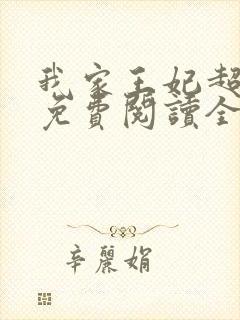 我家王妃超
免費閱讀全
辛麗娟